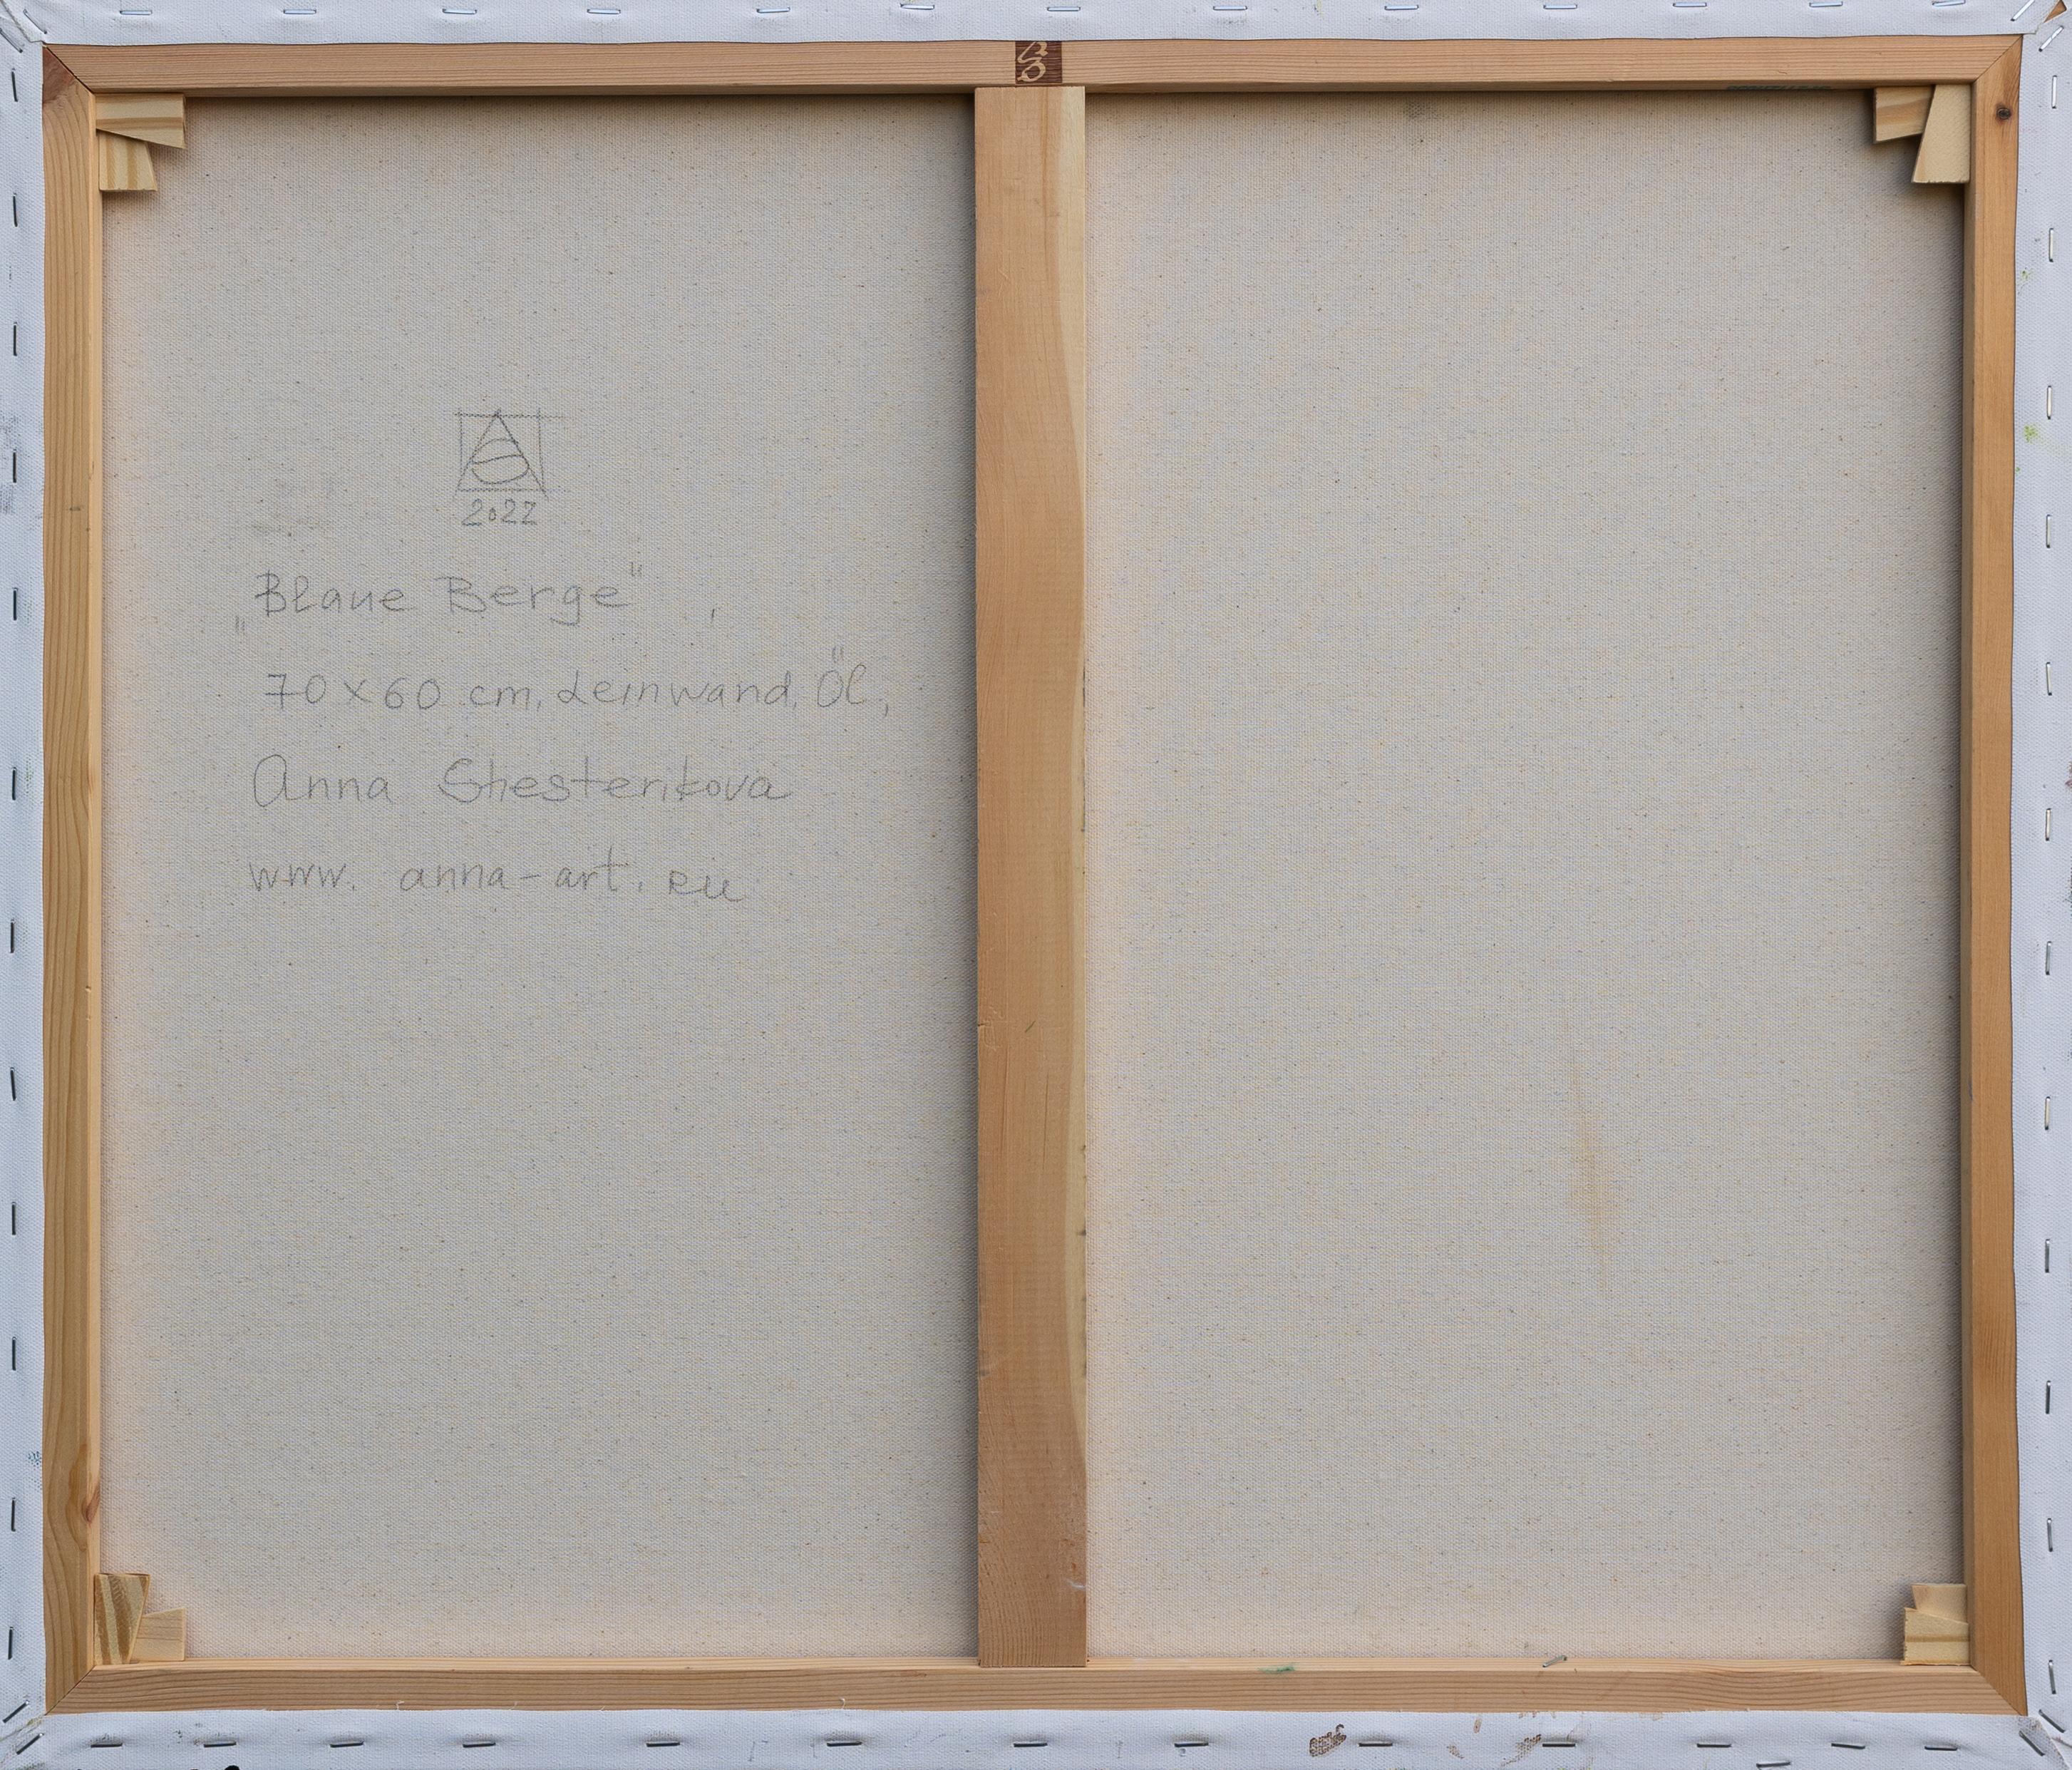 2022
„Blaue Berge",
70 x 60 cm, Leinwand, Öl,
Anna Shesterikova
www. anna-art. ru